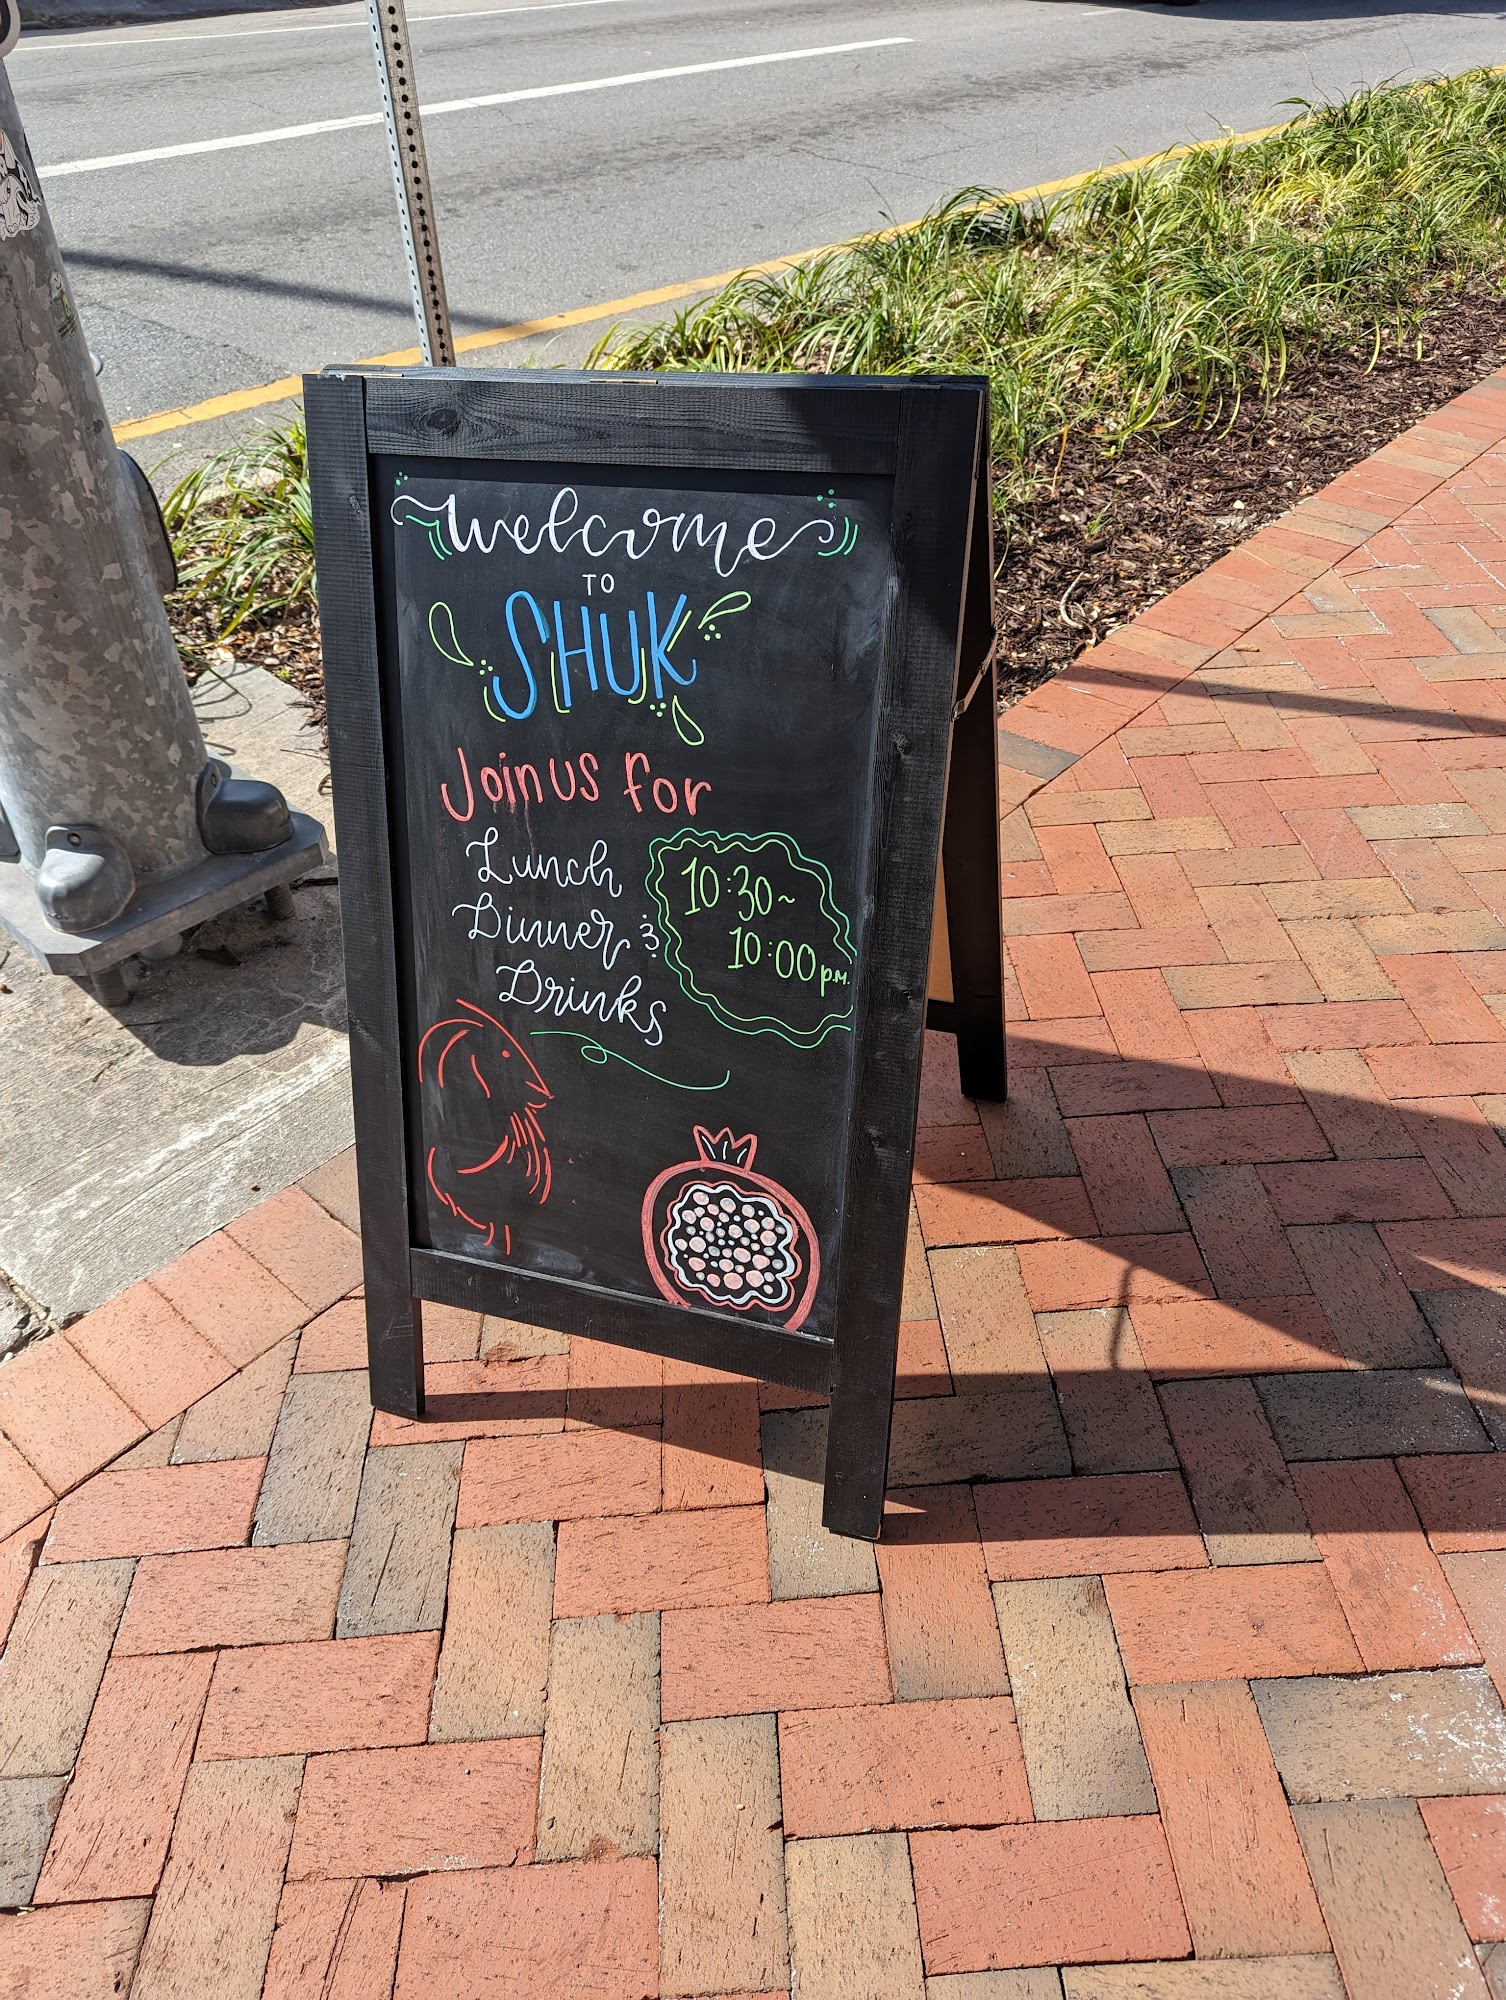 welcome
TO
SHUK
Join us for
Lunch
Dinner &
Drinks
10:30~
10:00 p.m.